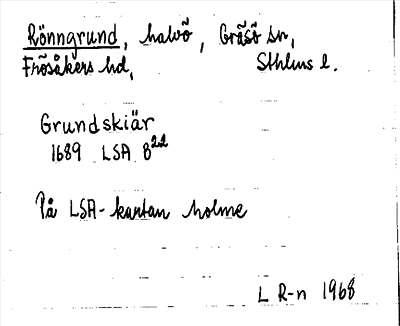 Rönngrund, halvö, Gräsö sn,
Frösåkers hd, Sthlms l.
Grundskiär
1689 LSA B22
På LSA-kartan holme
L R-n 1968